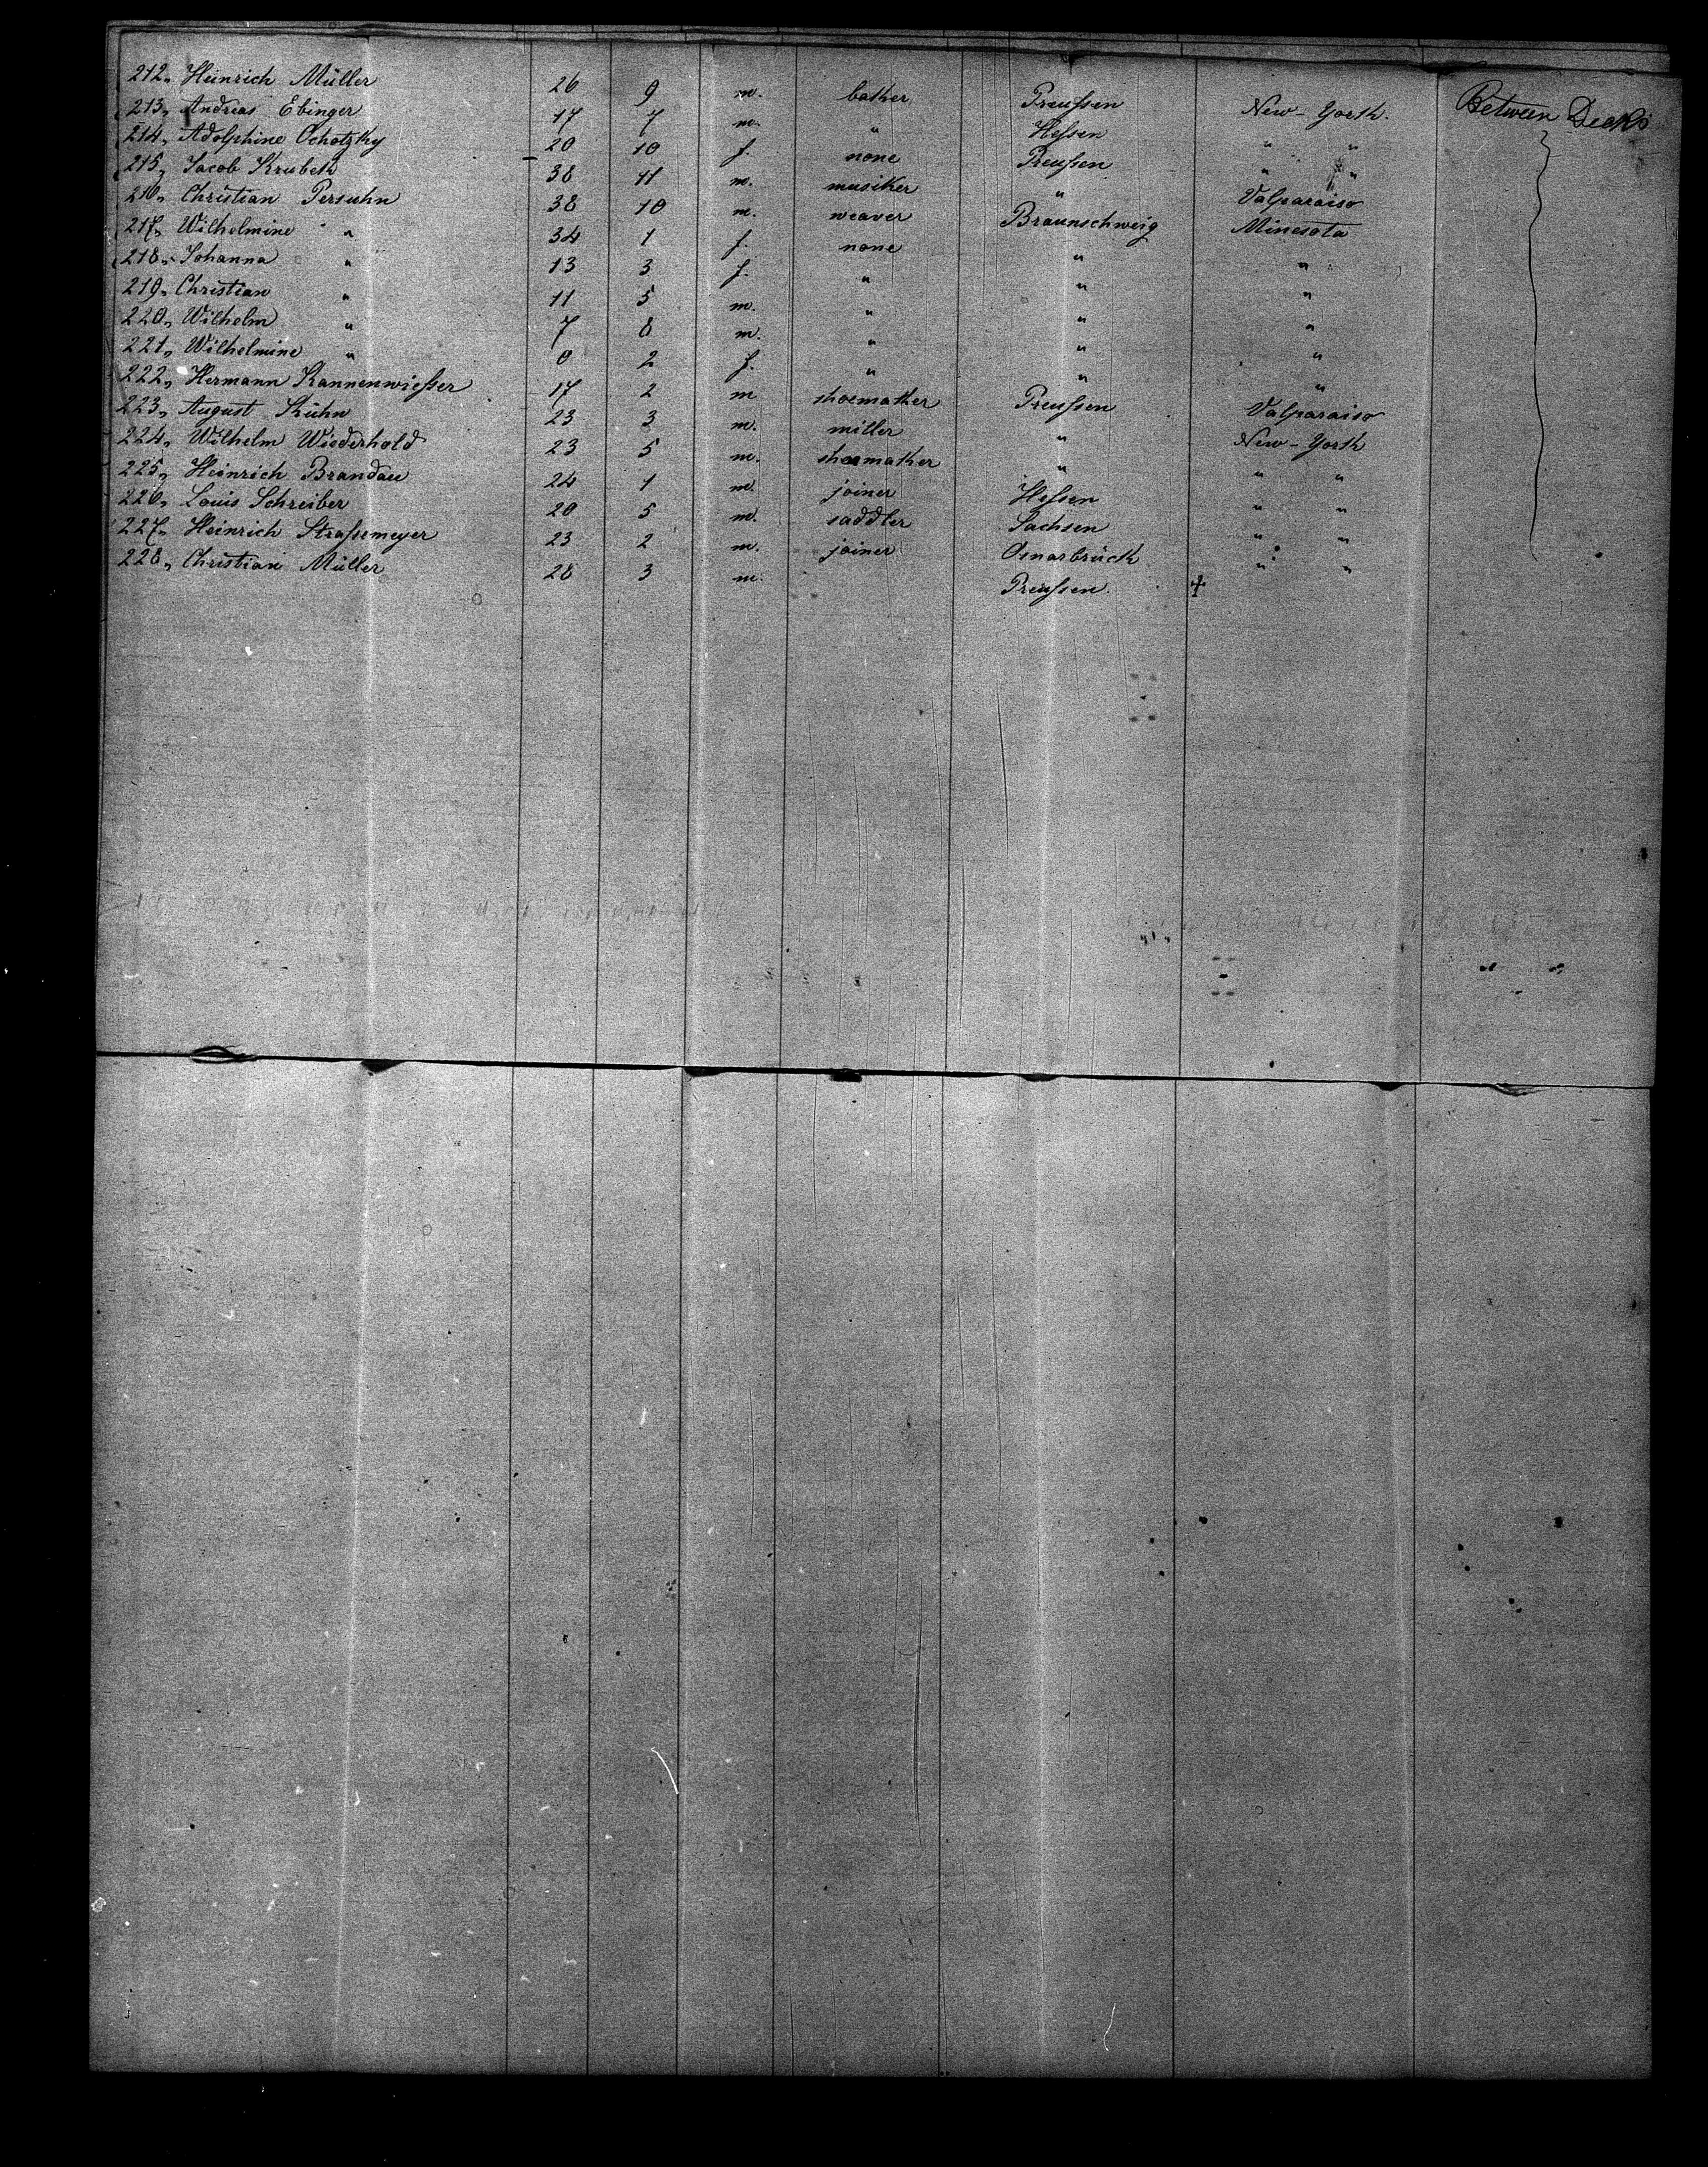 212, Heinrich Müller 26 9 m. baker Preußen New-York. Between Decks
213, Andreas Ebinger 17 7 m. " Heßen " "
214, Adolphine Ochotzky 20 10 f. none Preußen " "
215, Jacob Krubeck 38 11 m. musiker " Valparaiso
216, Christian Persuhn 38 10 m. weaver Braunschweig Minesota
217, Wilhelmine " 34 1 f. none " "
218, Johanna " 13 3 f. " " "
219, Christian " 11 5 m. " " "
220, Wilhelm " 7 8 m. " " "
221, Wilhelmine " 0 2 f. " " "
222, Hermann Kannenwießer 17 2 m shoemaker Preußen Valparaiso
223, August Kühn 23 3 m. miller " New-York
224, Wilhelm Wiederhold 23 5 m. shoemaker " " "
225, Heinrich Brandau 24 1 m. joiner Heßen " "
226, Louis Schreiber 20 5 m. saddler Sachsen " "
227, Heinrich Straßemeyer 23 2 m. joiner Osnarbrück " "
228, Christian Müller 28 3 m. Preußen. †